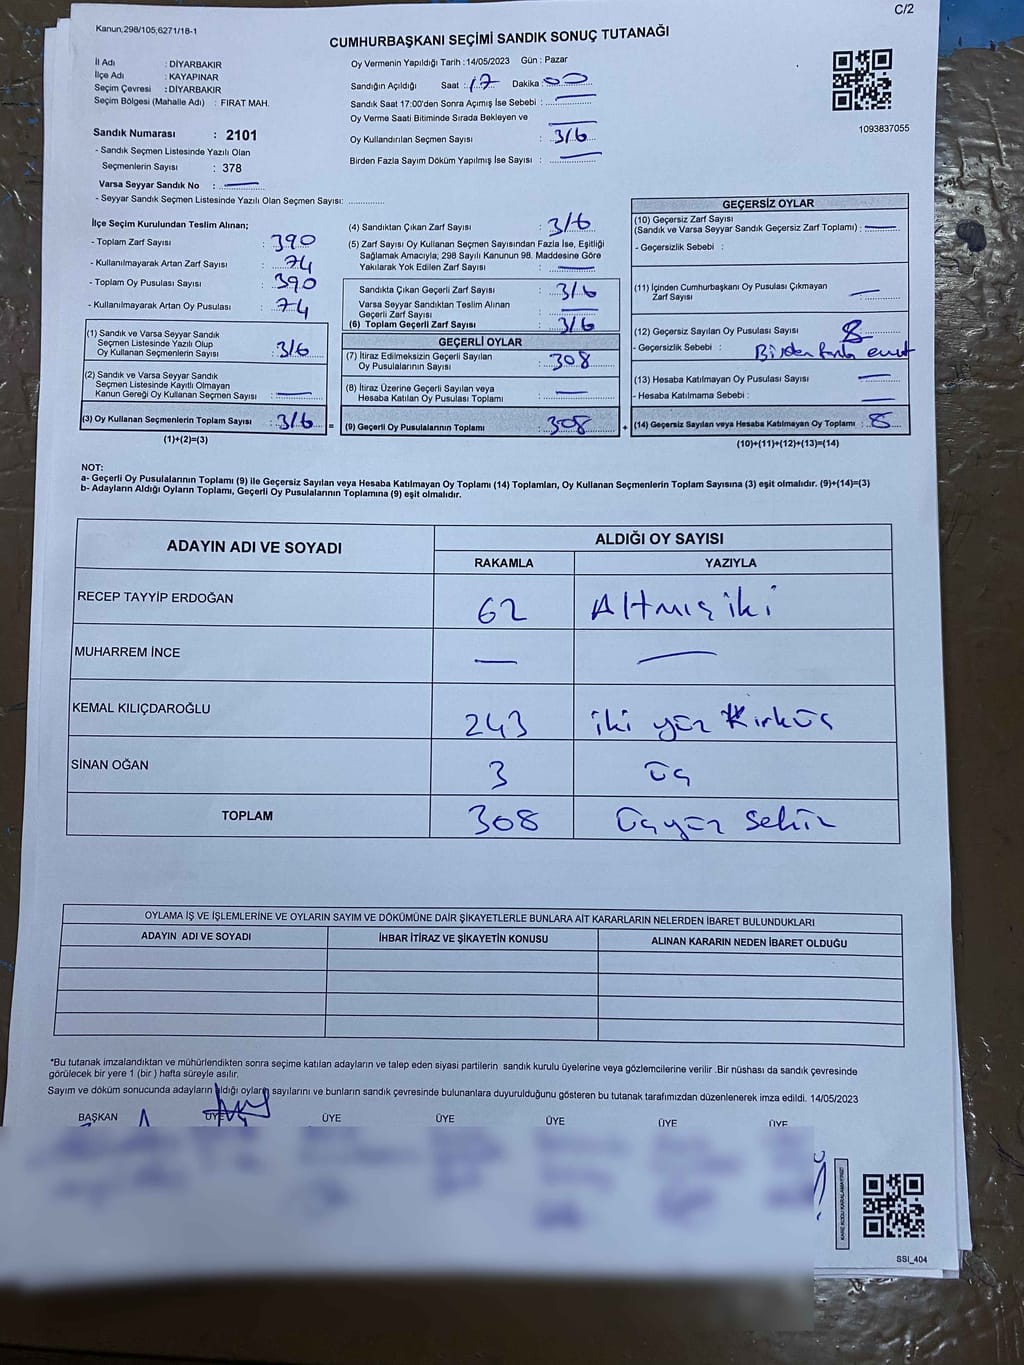 C/2
Kanun,298/105;6271/18-1
CUMHURBAŞKANI SEÇİMİ SANDIK SONUÇ TUTANAĞI
İl Adı : DİYARBAKIR
İlçe Adı : KAYAPINAR
Seçim Çevresi : DİYARBAKIR
Seçim Bölgesi (Mahalle Adı) : FIRAT MAH.
Sandık Numarası : 2101
- Sandık Seçmen Listesinde Yazılı Olan
Seçmenlerin Sayısı : 378
Varsa Seyyar Sandık No : —
- Seyyar Sandık Seçmen Listesinde Yazılı Olan Seçmen Sayısı: ............
Oy Vermenin Yapıldığı Tarih :14/05/2023 Gün : Pazar
Sandığın Açıldığı Saat : 17 Dakika : 00
Sandık Saat 17:00'den Sonra Açımış İse Sebebi : —
Oy Verme Saati Bitiminde Sırada Bekleyen ve —
Oy Kullandırılan Seçmen Sayısı : 316
Birden Fazla Sayım Döküm Yapılmış İse Sayısı : —
1093837055
İlçe Seçim Kurulundan Teslim Alınan;
- Toplam Zarf Sayısı : 390
- Kullanılmayarak Artan Zarf Sayısı : 74
- Toplam Oy Pusulası Sayısı : 390
- Kullanılmayarak Artan Oy Pusulası : 74
(1) Sandık ve Varsa Seyyar Sandık
Seçmen Listesinde Yazılı Olup
Oy Kullanan Seçmenlerin Sayısı : 316
(2) Sandık ve Varsa Seyyar Sandık
Seçmen Listesinde Kayıtlı Olmayan
Kanun Gereği Oy Kullanan Seçmen Sayısı : —
(3) Oy Kullanan Seçmenlerin Toplam Sayısı : 316 =
(1)+(2)=(3)
(4) Sandıktan Çıkan Zarf Sayısı : 316
(5) Zarf Sayısı Oy Kullanan Seçmen Sayısından Fazla İse, Eşitliği
Sağlamak Amacıyla; 298 Sayılı Kanunun 98. Maddesine Göre
Yakılarak Yok Edilen Zarf Sayısı : —
Sandıkta Çıkan Geçerli Zarf Sayısı : 316
Varsa Seyyar Sandıktan Teslim Alınan
Geçerli Zarf Sayısı : —
(6) Toplam Geçerli Zarf Sayısı : 316
GEÇERLİ OYLAR
(7) İtiraz Edilmeksizin Geçerli Sayılan
Oy Pusulalarının Sayısı : 308
(8) İtiraz Üzerine Geçerli Sayılan veya
Hesaba Katılan Oy Pusulası Toplamı : —
(9) Geçerli Oy Pusulalarının Toplamı : 308 +
GEÇERSİZ OYLAR
(10) Geçersiz Zarf Sayısı
(Sandık ve Varsa Seyyar Sandık Geçersiz Zarf Toplamı) : —
- Geçersizlik Sebebi :
(11) İçinden Cumhurbaşkanı Oy Pusulası Çıkmayan
Zarf Sayısı : —
(12) Geçersiz Sayılan Oy Pusulası Sayısı : 8
- Geçersizlik Sebebi : Birden fazla evet
(13) Hesaba Katılmayan Oy Pusulası Sayısı : —
- Hesaba Katılmama Sebebi : —
(14) Geçersiz Sayılan veya Hesaba Katılmayan Oy Toplamı : 8
(10)+(11)+(12)+(13)=(14)
NOT:
a- Geçerli Oy Pusulalarının Toplamı (9) ile Geçersiz Sayılan veya Hesaba Katılmayan Oy Toplamı (14) Toplamları, Oy Kullanan Seçmenlerin Toplam Sayısına (3) eşit olmalıdır. (9)+(14)=(3)
b- Adayların Aldığı Oyların Toplamı, Geçerli Oy Pusulalarının Toplamına (9) eşit olmalıdır.
ADAYIN ADI VE SOYADI ALDIĞI OY SAYISI
RAKAMLA YAZIYLA
RECEP TAYYİP ERDOĞAN 62 Altmış iki
MUHARREM İNCE — —
KEMAL KILIÇDAROĞLU 243 iki yüz Kırküç
SİNAN OĞAN 3 üç
TOPLAM 308 Üçyüz sekiz
OYLAMA İŞ VE İŞLEMLERİNE VE OYLARIN SAYIM VE DÖKÜMÜNE DAİR ŞİKAYETLERLE BUNLARA AİT KARARLARIN NELERDEN İBARET BULUNDUKLARI
ADAYIN ADI VE SOYADI İHBAR İTİRAZ VE ŞİKAYETİN KONUSU ALINAN KARARIN NEDEN İBARET OLDUĞU
*Bu tutanak imzalandıktan ve mühürlendikten sonra seçime katılan adayların ve talep eden siyasi partilerin sandık kurulu üyelerine veya gözlemcilerine verilir .Bir nüshası da sandık çevresinde
görülecek bir yere 1 (bir ) hafta süreyle asılır.
Sayım ve döküm sonucunda adayların aldığı oyların sayılarını ve bunların sandık çevresinde bulunanlara duyurulduğunu gösteren bu tutanak tarafımızdan düzenlenerek imza edildi. 14/05/2023
BAŞKAN ÜYE ÜYE ÜYE ÜYE ÜYE ÜYE
KARE KODU KARALAMAYINIZ!
SSI_404